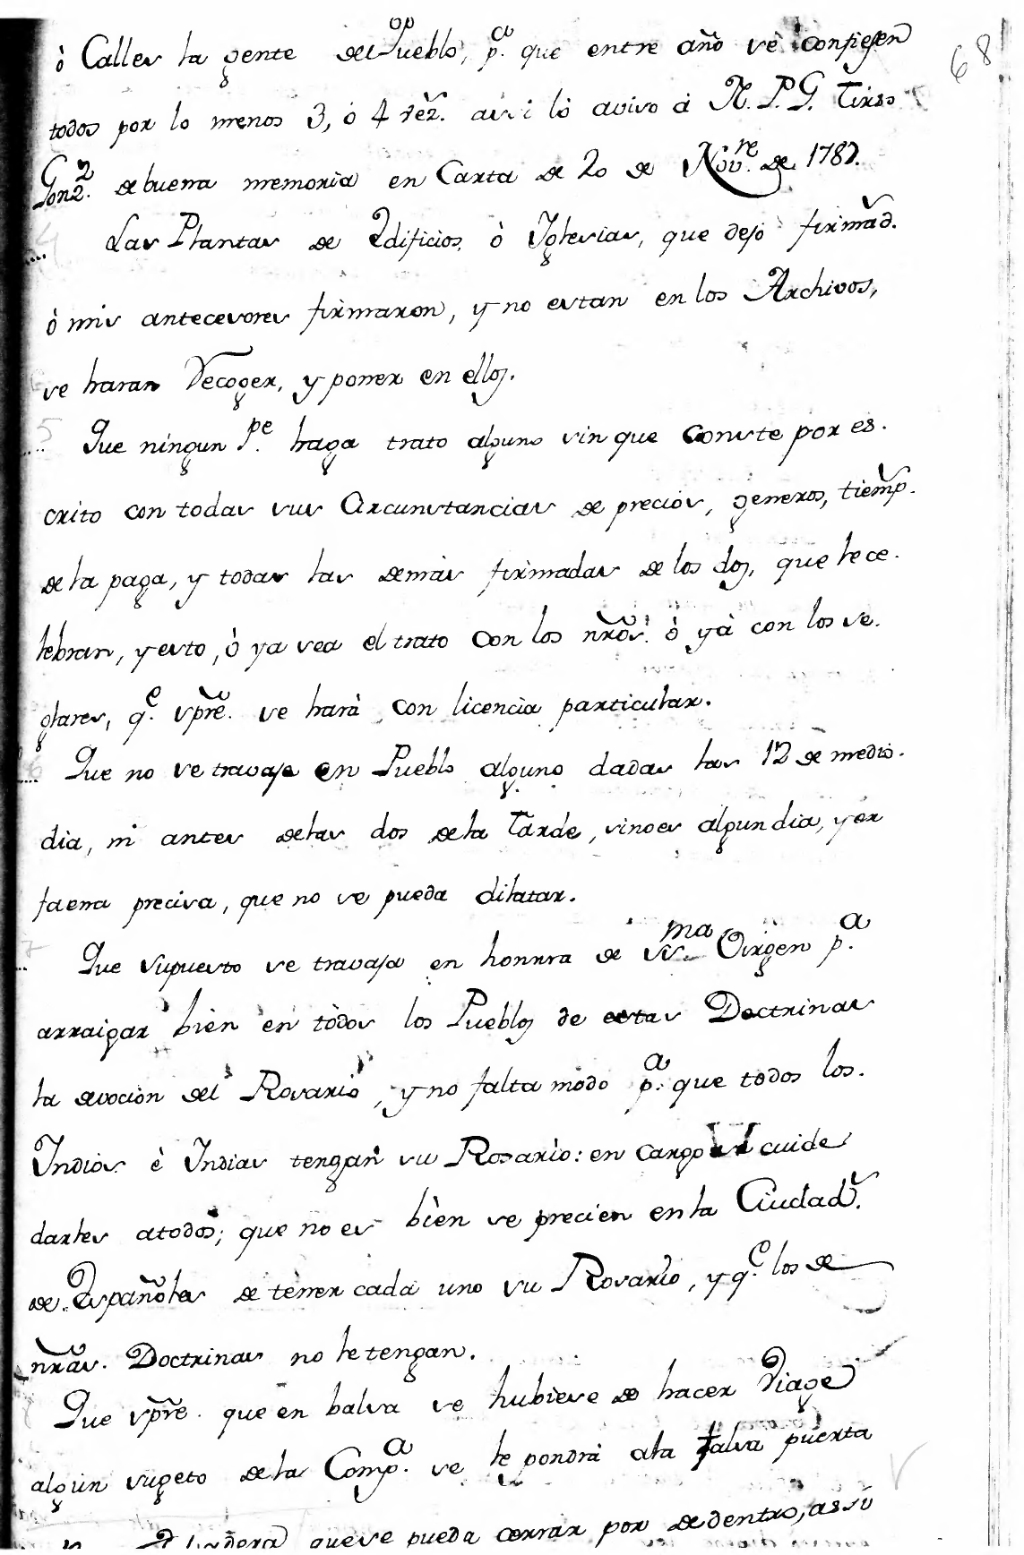 ò Calles la gente del Pueblo, p.ª que entre año se confiesen
68
todos por lo menos 3, ó 4 vez. assi lo aviso à N. P. G. Tirso
Gonz. de buena memoria en Carta de 20 de Nov.re de 1687.
4
Las Plantas de Edificios, ò Iglesias, que dejò firmad.
ò mis antecesores firmaron, y no estan en los Archivos,
se haran recoger, y poner en ellos.
5
Que ningun P.e haga trato alguno sin que conste por es-
crito con todas sus circunstancias de precios, generos, tiemp.
de la paga, y todas las demas firmadas de los dos, que le ce-
lebran, y esto, ò ya sea el trato con los nros. ò yà con los se-
glares, q.e spre. se harà con licencia particular.
6
Que no se travaje en Pueblo alguno dadas las 12 de medio-
dia, ni antes de las dos de la tarde, sino es algun dia, y en
faena precisa, que no se pueda dilatar.
7
Que supuesto se travaja en honrra de SS.ma Virgen p.ª
arraigar bien en todos los Pueblos de estas Doctrinas
la devocion del Rosario, y no falta modo p.ª que todos los
Indios è Indias tengan su Rosario: en cargo cuide
darles a todos; que no es bien se precien en la Ciudad.
de Españoles de tener cada uno su Rosario, y q.e los de
nras. Doctrinas no le tengan.
Que spre. que en balsa se hubiese de hacer Viage
algun sugeto de la Comp.ª se le pondrà a la salva puerta
que se pueda cerrar por de dentro, assi